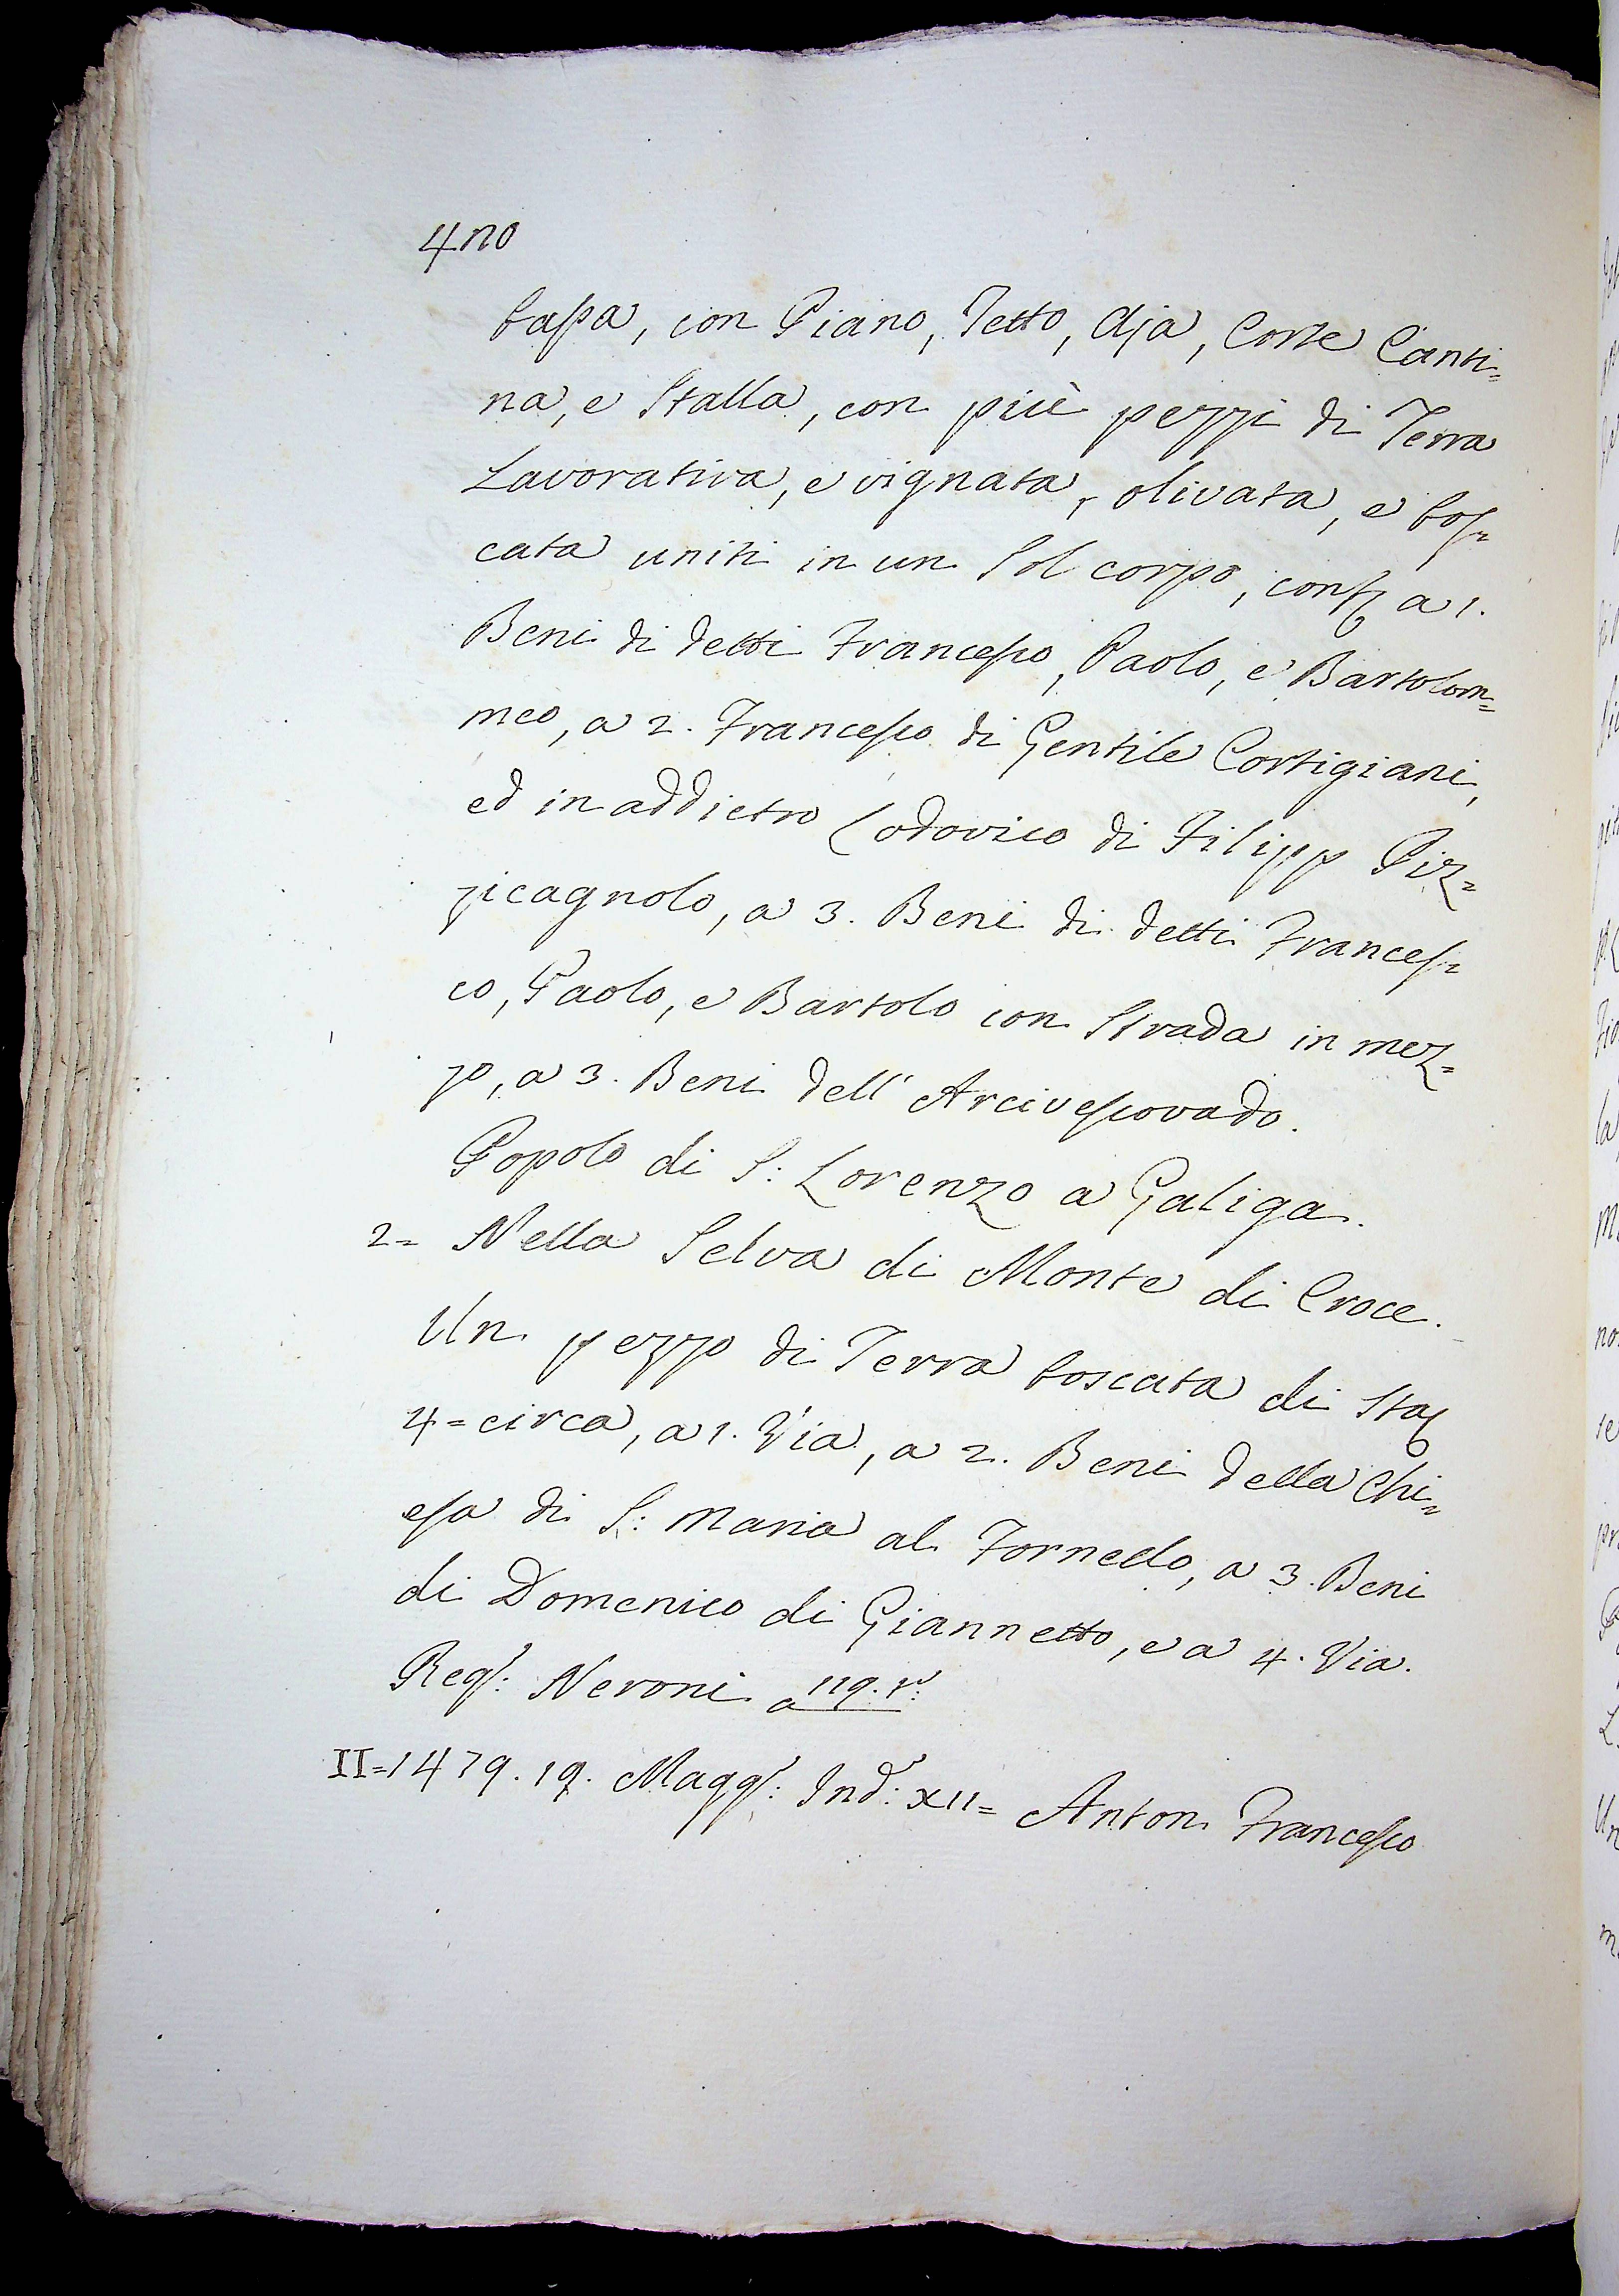 4no
bassa, con Piano, Tetto, Aja, Corte Canti=
na, e Stalla, con più pezzi di Terra
Lavorativa, e vignata, olivata, e bos=
cata uniti in un Sol corpo, conf a 1.
Beni di detti Francesco, Paolo, e Bartolom=
meo, a 2. Francesco di Gentile Cortigiani,
ed in addietro Lodovico di Filipp Piz=
zicagnolo, a 3. Beni di detti Frances=
co, Paolo, e Bartolo con Strada in mez=
zo, a 3. Beni dell'Arcivescovado.
Popolo di S: Lorenzo a Galiga.
2= Nella Selva di Monte di Croce.
Un pezzo di Terra boscata di Sta
4= circa, a 1. Via, a 2. Beni della Chi=
esa di S: Maria al Fornello, a 3. Beni
di Domenico di Giannetto, e a 4. Via.
Regs: Neroni a 119. r:
II=1479. 19. Magg: Ind: XII= Anton Francesco